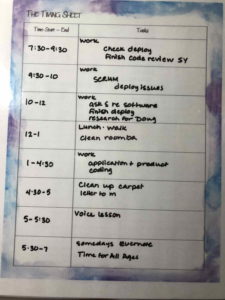 THE TIMING SHEET
Time Start - End Tasks
7:30-9:30 Work
check deploy
Finish code review SY
9:30-10 Work
SCRUM
deploy issues
10-12 Work
ask S re software
finish deploy
research for Doug
12-1 Lunch - Walk
Clean roomba
1-4:30 Work
application + product
coding
4:30-5 Clean up carpet
letter to m
5-5:30 Voice lesson
5:30-7 Somedays Evernote
Time for All Ages